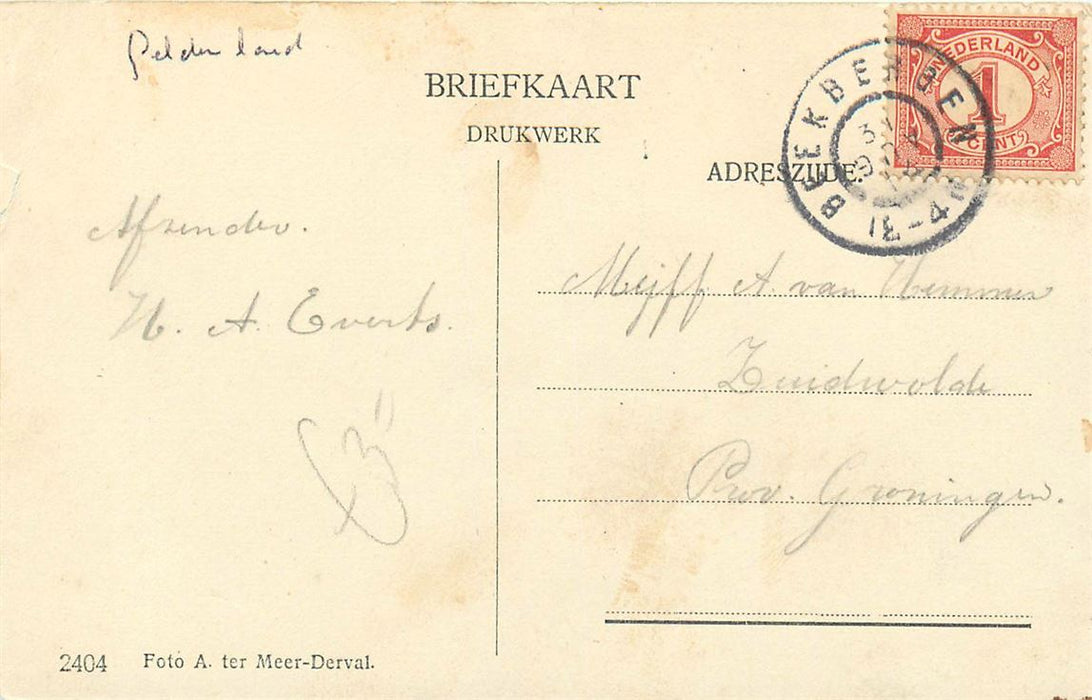 Gelderland
BRIEFKAART
DRUKWERK
ADRESZIJDE.
NEDERLAND
1
CENT
BEEKBERGEN
Afzender.
H. A. Everts.
Mejff A. van Hemmen
Zuidwolde
Prov. Groningen.
2404 Foto A. ter Meer-Derval.